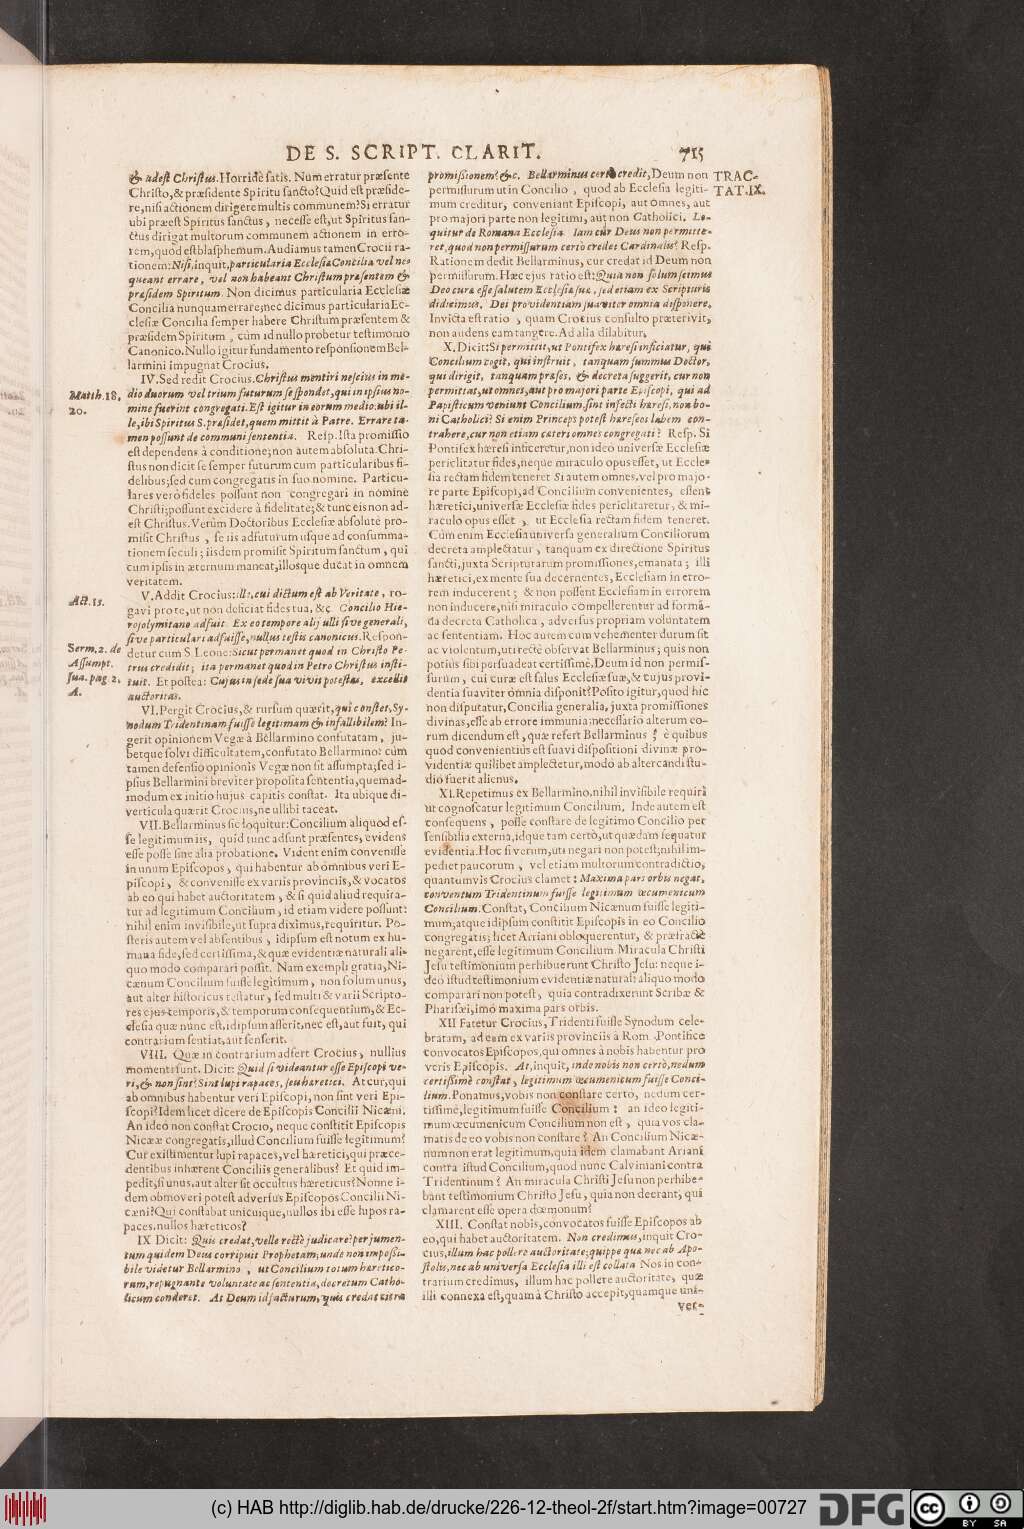 DE S. SCRIPT. CLARIT. 715
TRAC-
TAT.IX.
& adest Christus. Horridè satis. Num erratur præsente
Christo, & præsidente Spiritu sancto? Quid est præside-
re, nisi actionem dirigere multis communem? Si erratur
ubi præest Spiritus sanctus, necesse est, ut Spiritus san-
ctus dirigat multorum communem actionem in erro-
rem, quod est blasphemum. Audiamus tamen Crocii ra-
tionem: Nisi, inquit, particularia Ecclesiæ Concilia vel ne-
queant errare, vel non habeant Christum præsentem &
præsidem Spiritum. Non dicimus particularia Ecclesiæ
Concilia nunquam errare; nec dicimus particularia Ec-
clesiæ Concilia semper habere Christum præsentem &
præsidem Spiritum, cùm id nullo probetur testimonio
Canonico. Nullo igitur fundamento responsionem Bel-
larmini impugnat Crocius.
IV. Sed redit Crocius. Christus mentiri nescius in me-
Matth. 18.
dio duorum vel trium futurum se spondet, qui in ipsius no-
20.
mine fuerint congregati. Est igitur in eorum medio: ubi il-
le, ibi Spiritus S. præsidet, quem mittit à Patre. Errare ta-
men possunt de communi sententia. Resp. Ista promissio
est dependens à conditione; non autem absoluta. Chri-
stus non dicit se semper futurum cum particularibus fi-
delibus; sed cum congregatis in suo nomine. Particu-
lares verò fideles possunt non congregari in nomine
Christi; possunt excidere à fidelitate; & tunc eis non ad-
est Christus. Verùm Doctoribus Ecclesiæ absolutè pro-
misit Christus, se iis adfuturum usque ad consumma-
tionem seculi; iisdem promisit Spiritum sanctum, qui
cum ipsis in æternum maneat, illosque ducat in omnem
veritatem.
V. Addit Crocius: ille, cui dictum est ab Veritate, ro-
Act. 15.
gavi pro te, ut non deficiat fides tua, &c. Concilio Hie-
rosolymitano adfuit. Ex eo tempore alij ulli sive generali,
sive particulari adfuisse, nullus testis canonicus. Respon-
Serm. 2. de
detur cum S. Leone: Sicut permanet quod in Christo Pe-
Assumpt.
trus credidit; ita permanet quod in Petro Christus insti-
sua. pag. 2.
tuit. Et postea: Cujus in sede sua vivit potestas, excellit
A.
auctoritas.
VI. Pergit Crocius, & rursum quærit, quî constet, Sy-
nodum Tridentinam fuisse legitimam & infallibilem? In-
gerit opinionem Vegæ à Bellarmino confutatam, ju-
betque solvi difficultatem, confutato Bellarmino: cùm
tamen defensio opinionis Vegæ non sit assumpta; sed i-
psius Bellarmini breviter proposita sententia, quemad-
modum ex initio hujus capitis constat. Ita ubique di-
verticula quærit Crocius, ne ullibi taceat.
VII. Bellarminus sic loquitur: Concilium aliquod es-
se legitimum iis, quid tunc adsunt præsentes, evidens
esse posse sine alia probatione. Vident enim convenisse
in unum Episcopos, qui habentur ab omnibus veri E-
piscopi, & convenisse ex variis provinciis, & vocatos
ab eo qui habet auctoritatem, & si quid aliud requira-
tur ad legitimum Concilium, id etiam videre possunt:
nihil enim invisibile, ut supra diximus, requiritur. Po-
steris autem vel absentibus, id ipsum est notum ex hu-
mana fide, sed certissima, & quæ evidentiæ naturali ali-
quo modo comparari possit. Nam exempli gratia, Ni-
cænum Concilium fuisse legitimum, non solum unus,
aut alter historicus testatur, sed multi & varii Scripto-
res ejus temporis, & temporum consequentium, & Ec-
clesia quæ nunc est, id ipsum asserit, nec est, aut fuit, qui
contrarium sentiat, aut senserit.
VIII. Quæ in contrarium adfert Crocius, nullius
momenti sunt. Dicit: Quid si videantur esse Episcopi ve-
ri, & non sint? Sint lupi rapaces, seu hæretici. At cur, qui
ab omnibus habentur veri Episcopi, non sint veri Epi-
scopi? Idem licet dicere de Episcopis Concilii Nicæni.
An ideo non constat Crocio, neque constitit Episcopis
Nicææ congregatis, illud Concilium fuisse legitimum?
Cur existimentur lupi rapaces, vel hæretici, qui præce-
dentibus inhærent Conciliis generalibus? Et quid im-
pedit, si unus, aut alter sit occultus hæreticus? Nonne i-
dem obmoveri potest adversus Episcopos Concilii Ni-
cæni? Qui constabat unicuique, nullos ibi esse lupos ra-
paces, nullos hæreticos?
IX Dicit: Quis credat, velle rectè judicare? per jumen-
tum quidem Deus corripuit Prophetam; unde non impossi-
bile videtur Bellarmino, ut Concilium totum hæretico-
rum, repugnante voluntate ac sententia, decretum Catho-
licum conderet. At Deum id facturum, quis credat citra
promissionem? &c. Bellarminus certò credit, Deum non
permissurum ut in Concilio, quod ab Ecclesia legiti-
mum creditur, conveniant Episcopi, aut omnes, aut
pro majori parte non legitimi, aut non Catholici. Lo-
quitur de Romana Ecclesia. Iam cur Deus non permitte-
ret, quod non permissurum certò credet Cardinalis? Resp.
Rationem dedit Bellarminus, cur credat id Deum non
permissurum. Hæc ejus ratio est: Quia non solum scimus
Deo curæ esse salutem Ecclesiæ suæ, sed etiam ex Scripturis
didicimus, Dei providentiam suaviter omnia disponere.
Invicta est ratio, quam Crocius consulto præterivit,
non audens eam tangere. Ad alia dilabitur.
X. Dicit: Si permittit, ut Pontifex hæresi inficiatur, qui
Concilium cogit, qui instruit, tanquam summus Doctor,
qui dirigit, tanquam præses, & decreta suggerit, cur non
permittat, ut omnes, aut pro majori parte Episcopi, qui ad
Papisticum veniunt Concilium, sint infecti hæresi, non bo-
ni Catholici? Si enim Princeps potest hæreseos labem con-
trahere, cur non etiam cæteri omnes congregati? Resp. Si
Pontifex hæresi inficeretur, non ideo universæ Ecclesiæ
periclitatur fides, neque miraculo opus esset, ut Eccle-
sia rectam fidem teneret. Si autem omnes, vel pro majo-
re parte Episcopi, ad Concilium convenientes, essent
hæretici, universæ Ecclesiæ fides periclitaretur, & mi-
raculo opus esset, ut Ecclesia rectam fidem teneret.
Cùm enim Ecclesia universa generalium Conciliorum
decreta amplectatur, tanquam ex directione Spiritus
sancti, juxta Scripturarum promissiones, emanata; illi
hæretici, ex mente sua decernentes, Ecclesiam in erro-
rem inducerent; & non possent Ecclesiam in errorem
non inducere, nisi miraculo compellerentur ad forman-
da decreta Catholica, adversus propriam voluntatem
ac sententiam. Hoc autem cum vehementer durum sit
ac violentum, uti rectè observat Bellarminus; quis non
potius sibi persuadeat certissimè, Deum id non permis-
surum, cui curæ est salus Ecclesiæ suæ, & cujus provi-
dentia suaviter omnia disponit? Posito igitur, quod hîc
non disputatur, Concilia generalia, juxta promissiones
divinas, esse ab errore immunia: necessario alterum eo-
rum dicendum est, quæ refert Bellarminus; è quibus
quod convenientius est suavi dispositioni divinæ pro-
videntiæ quilibet amplectetur, modò ab altercandi stu-
dio fuerit alienus.
XI. Repetimus ex Bellarmino, nihil invisibile requiri
ut cognoscatur legitimum Concilium. Inde autem est
consequens, posse constare de legitimo Concilio per
sensibilia externa, idque tam certò, ut quædam sequatur
evidentia. Hoc si verum, uti negari non potest; nihil im-
pediet paucorum, vel etiam multorum contradictio,
quantumvis Crocius clamet: Maxima pars orbis negat,
conventum Tridentinum fuisse legitimum œcumenicum
Concilium. Constat, Concilium Nicænum fuisse legiti-
mum, atque id ipsum constitit Episcopis in eo Concilio
congregatis; licet Arriani obloquerentur, & præfractè
negarent, esse legitimum Concilium. Miracula Christi
Jesu testimonium perhibuerunt Christo Jesu: neque i-
deo istud testimonium evidentiæ naturali aliquo modo
comparari non potest, quia contradixerunt Scribæ &
Pharisæi, imò maxima pars orbis.
XII Fatetur Crocius, Tridenti fuisse Synodum cele-
bratam, ad eam ex variis provinciis à Rom. Pontifice
convocatos Episcopos, qui omnes à nobis habentur pro
veris Episcopis. At, inquit, inde nobis non certò, nedum
certissimè constat, legitimum œcumenicum fuisse Conci-
lium. Ponamus, vobis non constare certò, nedum cer-
tissimè, legitimum fuisse Concilium: an ideo legiti-
mum œcumenicum Concilium non est, quia vos cla-
matis de eo vobis non constare? An Concilium Nicæ-
num non erat legitimum, quia idem clamabant Ariani
contra istud Concilium, quod nunc Calviniani contra
Tridentinum? An miracula Christi Jesu non perhibe-
bant testimonium Christo Jesu, quia non deerant, qui
clamarent esse opera dæmonum?
XIII. Constat nobis, convocatos fuisse Episcopos ab
eo, qui habet auctoritatem. Non credimus, inquit Cro-
cius, illum hac pollere auctoritate; quippe quæ nec ab Apo-
stolis, nec ab universa Ecclesia illi est collata. Nos in con-
trarium credimus, illum hac pollere auctoritate, quæ
illi connexa est, quam à Christo accepit, quamque uni-
ver-
(c) HAB http://diglib.hab.de/drucke/226-12-theol-2f/start.htm?image=00727
DFG
CC
BY SA